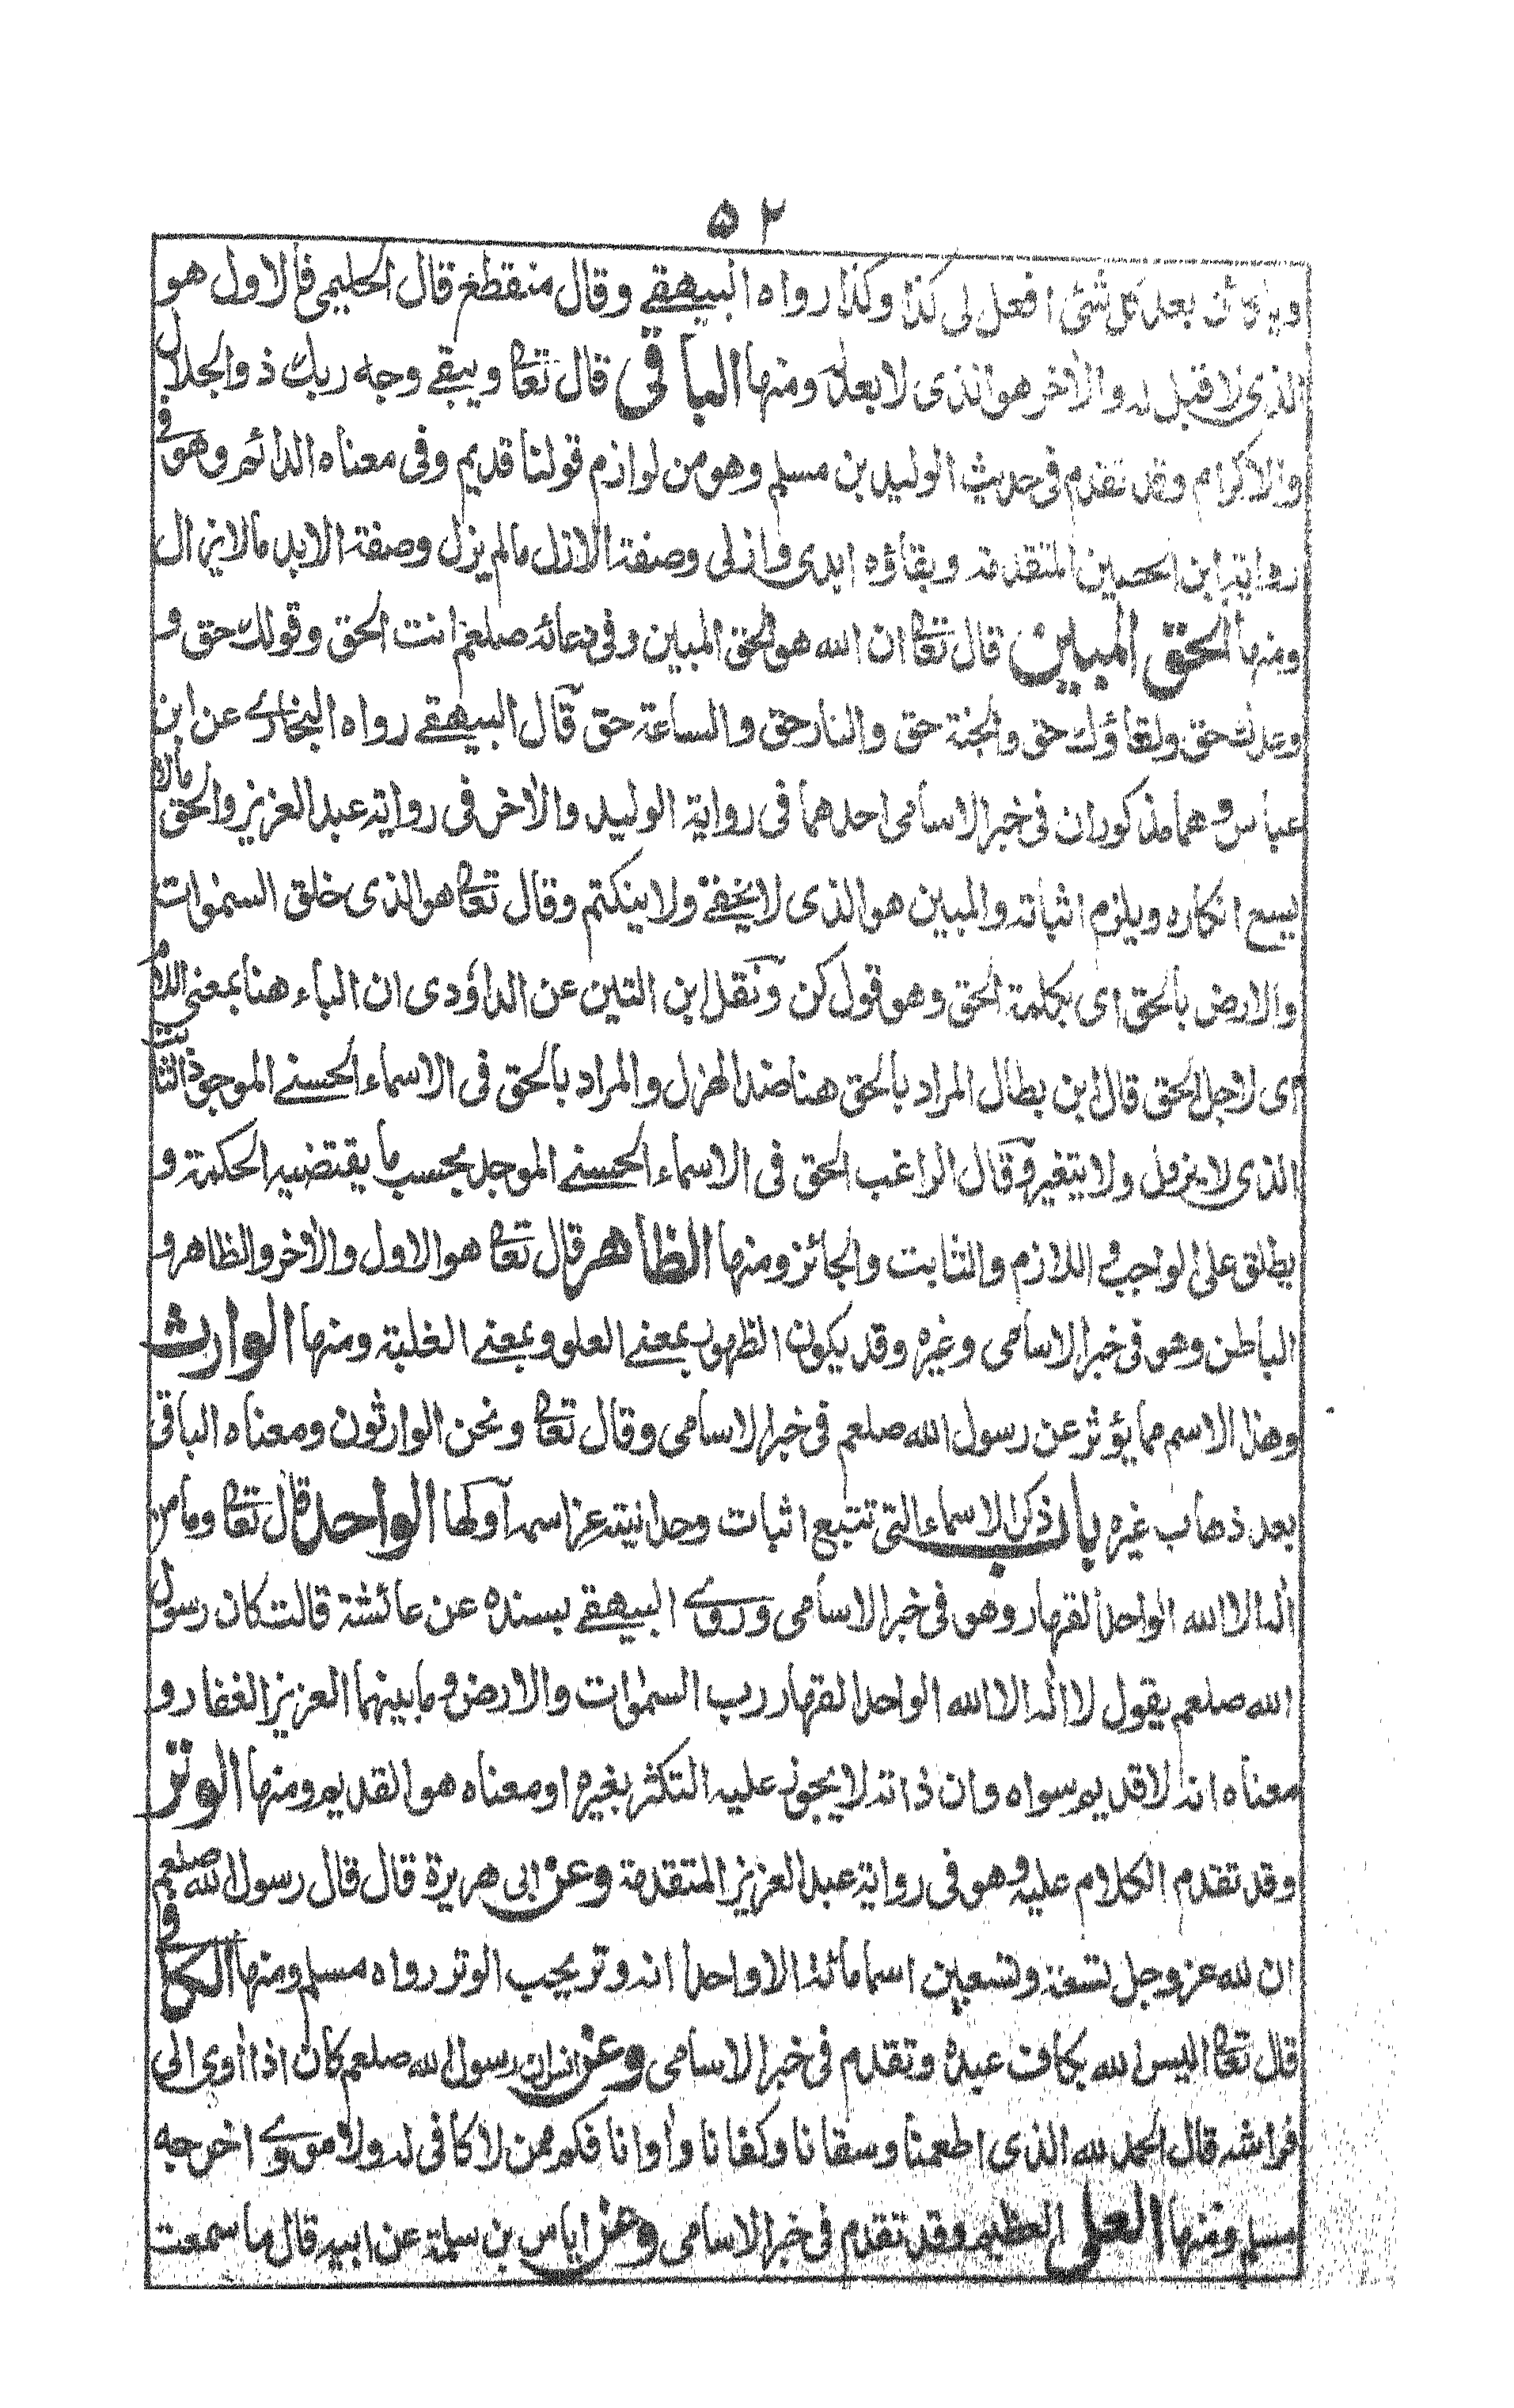 ٥٢
بعد كل شئ افعل لى كذا وكذا رواه البيهقے وقال منقطع قال الحليمى فالاول هو
الذى لا قبل له والاخر هو الذى لا بعد له ومنها الباقى قال تعا ويبقے وجه ربك ذو الجلال
والاكرام وقد تقدم فى حديث الوليد بن مسلم وهو من لوازم قولنا قديم وفى معناه الدائم وهو فى
رواية ابن الحسين المتقدمة وبقاؤه ابدى وازلى وصفة الازل مالم يزل وصفة الابد مالايزال
ومنها الحق المبين قال تعا ان الله هو الحق المبين وفى دعائه صلعم انت الحق وقولك حق و
وعدك حق ولقاؤك حق والجنة حق والنار حق والساعة حق قال البيهقے رواه البخارے عن ابن
عباس وهما مذكوران فى خبر الاسامى احدهما فى رواية الوليد والاخر فى رواية عبد العزيز والحق مالا
يسع انكاره ويلزم اثباته والمبين هو الذى لا يخفے ولا ينكتم وقال تعا هو الذى خلق السموات
والارض بالحق اى بكلمة الحق وهو قول كن ونقل ابن التين عن الداؤدى ان الباء هنا بمعنى اللام
اى لاجل الحق قال ابن بطال المراد بالحق هنا ضد الهزل والمراد بالحق فى الاسماء الحسنے الموجود الثابت
الذى لا يزول ولا يتغير وقال الراغب الحق فى الاسماء الحسنے الموجد بحسب ما يقتضيه الحكمة و
يطلق على الواجب و اللازم والثابت والجائز ومنها الظاهر قال تعا هو الاول والاخر والظاهر و
الباطن وهو فى خبر الاسامى وغيره وقد يكون الظهور بمعنے العلو وبمعنے الغلبة ومنها الوارث
وهذا الاسم مما يؤثر عن رسول الله صلعم فى خبر الاسامى وقال تعا ونحن الوارثون ومعناه الباقى
بعد ذهاب غيره باب ذكر الاسماء التى تتبع اثبات وحدانيته عز اسمه اولها الواحد قال تعا وما من
اله الا الله الواحد القهار وهو فى خبر الاسامى وروے البيهقے بسنده عن عائشة قالت كان رسول
الله صلعم يقول لا اله الا الله الواحد القهار رب السموات والارض وما بينهما العزيز الغفار و
معناه انه لا قديم سواه وان ذاته لا يجوز عليه التكثر بغيره او معناه هو القديم ومنها الوتر
وقد تقدم الكلام عليه وهو فى رواية عبد العزيز المتقدمة وعن ابى هريرة قال قال رسول الله صلعم
ان لله عز وجل تسعة وتسعين اسما مائة الا واحدا انه وتر يحب الوتر رواه مسلم ومنها الكافى
قال تعا اليس الله بكاف عبده وتقدم فى خبر الاسامى وعن انس ان رسول الله صلعم كان اذا اوى الى
فراشه قال الحمد لله الذى اطعمنا وسقانا وكفانا واوانا فكم ممن لا كافى له ولا موے اخرجه
مسلم ومنها العلى العظيم وقد تقدم فى خبر الاسامى وعن اياس بن سلمة عن ابيه قال ما سمعت